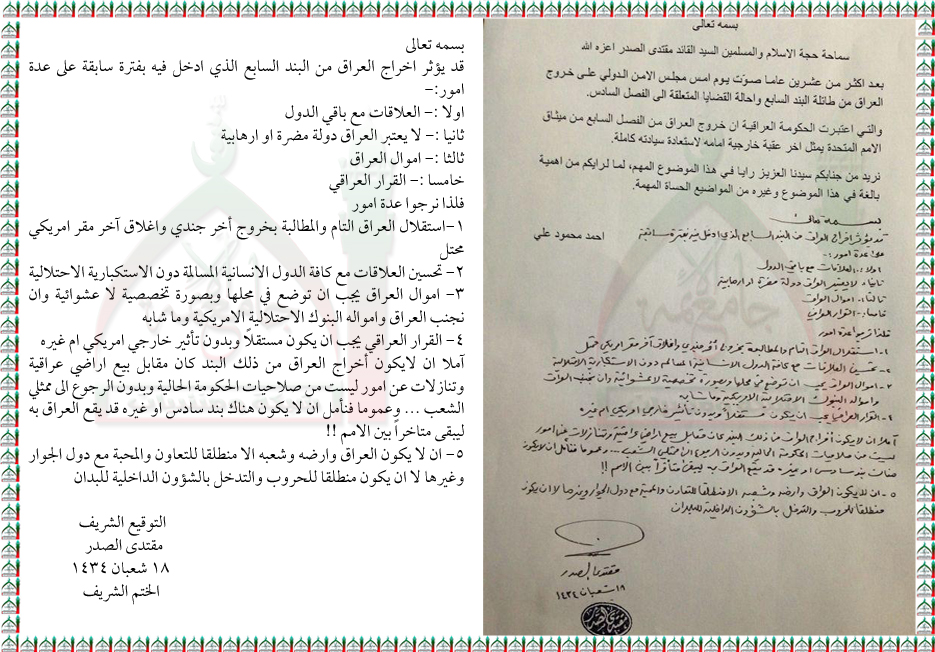 بسمه تعالى
سماحة حجة الاسلام والمسلمين السيد القائد مقتدى الصدر اعزه الله
بعد اكثر من عشرين عاما صوت يوم امس مجلس الامن الدولي على خروج
العراق من طائلة البند السابع واحالة القضايا المتعلقة الى الفصل السادس.
والتي اعتبرت الحكومة العراقية ان خروج العراق من الفصل السابع من ميثاق
الامم المتحدة يمثل اخر عقبة خارجية امامه لاستعادة سيادته كاملة.
نريد من جنابكم سيدنا العزيز رايا في هذا الموضوع المهم، لما لرايكم من اهمية
بالغة في هذا الموضوع وغيره من المواضيع الحساة المهمة.
احمد محمود علي
بسمه تعالى
قد يؤثر اخراج العراق من البند السابع الذي ادخل فيه بفترة سابقة
على عدة امور :-
اولا :- العلاقات مع باقي الدول
ثانيا :- لا يعتبر العراق دولة مضرة او ارهابية
ثالثا :- اموال العراق
خامسا :- القرار العراقي
فلذا نرجوا عدة امور
١- استقلال العراق التام والمطالبة بخروج أخر جندي واغلاق آخر مقر امريكي محتل
٢- تحسين العلاقات مع كافة الدول الانسانية المسالمة دون الاستكبارية الاحتلالية
٣- اموال العراق يجب ان توضع في محلها وبصورة تخصصية لا عشوائية وان نجنب العراق
وامواله البنوك الاحتلالية الامريكية وما شابه
٤- القرار العراقي يجب ان يكون مستقلاً وبدون تأثير خارجي امريكي ام غيره
آملا ان لايكون أخراج العراق من ذلك البند كان مقابل بيع اراضي عراقية وتنازلات عن امور
ليست من صلاحيات الحكومة الحالية وبدون الرجوع الى ممثلي الشعب ... وعموما فنأمل ان لايكون
هناك بند سادس او غيره قد يقع العراق به ليبقى متأخراً بين الامم !!
٥- ان لا يكون العراق وارضه وشعبه الا منطلقا للتعاون والمحبة مع دول الجوار وغيرها لا ان يكون
منطلقا للحروب والتدخل بالشؤون الداخلية للبلدان
مقتدى الصدر
١٨ شعبان ١٤٣٤
بسمه تعالى
قد يؤثر اخراج العراق من البند السابع الذي ادخل فيه بفترة سابقة على عدة
امور:-
اولا :- العلاقات مع باقي الدول
ثانيا :- لا يعتبر العراق دولة مضرة او ارهابية
ثالثا :- اموال العراق
خامسا :- القرار العراقي
فلذا نرجوا عدة امور
١-استقلال العراق التام والمطالبة بخروج أخر جندي واغلاق آخر مقر امريكي
محتل
٢- تحسين العلاقات مع كافة الدول الانسانية المسالمة دون الاستكبارية الاحتلالية
٣- اموال العراق يجب ان توضع في محلها وبصورة تخصصية لا عشوائية وان
نجنب العراق وامواله البنوك الاحتلالية الامريكية وما شابه
٤- القرار العراقي يجب ان يكون مستقلاً وبدون تأثير خارجي امريكي ام غيره
آملا ان لايكون أخراج العراق من ذلك البند كان مقابل بيع اراضي عراقية
وتنازلات عن امور ليست من صلاحيات الحكومة الحالية وبدون الرجوع الى ممثلي
الشعب ... وعموما فنأمل ان لا يكون هناك بند سادس او غيره قد يقع العراق به
ليبقى متاخراً بين الامم !!
٥- ان لا يكون العراق وارضه وشعبه الا منطلقا للتعاون والمحبة مع دول الجوار
وغيرها لا ان يكون منطلقا للحروب والتدخل بالشؤون الداخلية للبدان
التوقيع الشريف
مقتدى الصدر
١٨ شعبان ١٤٣٤
الختم الشريف